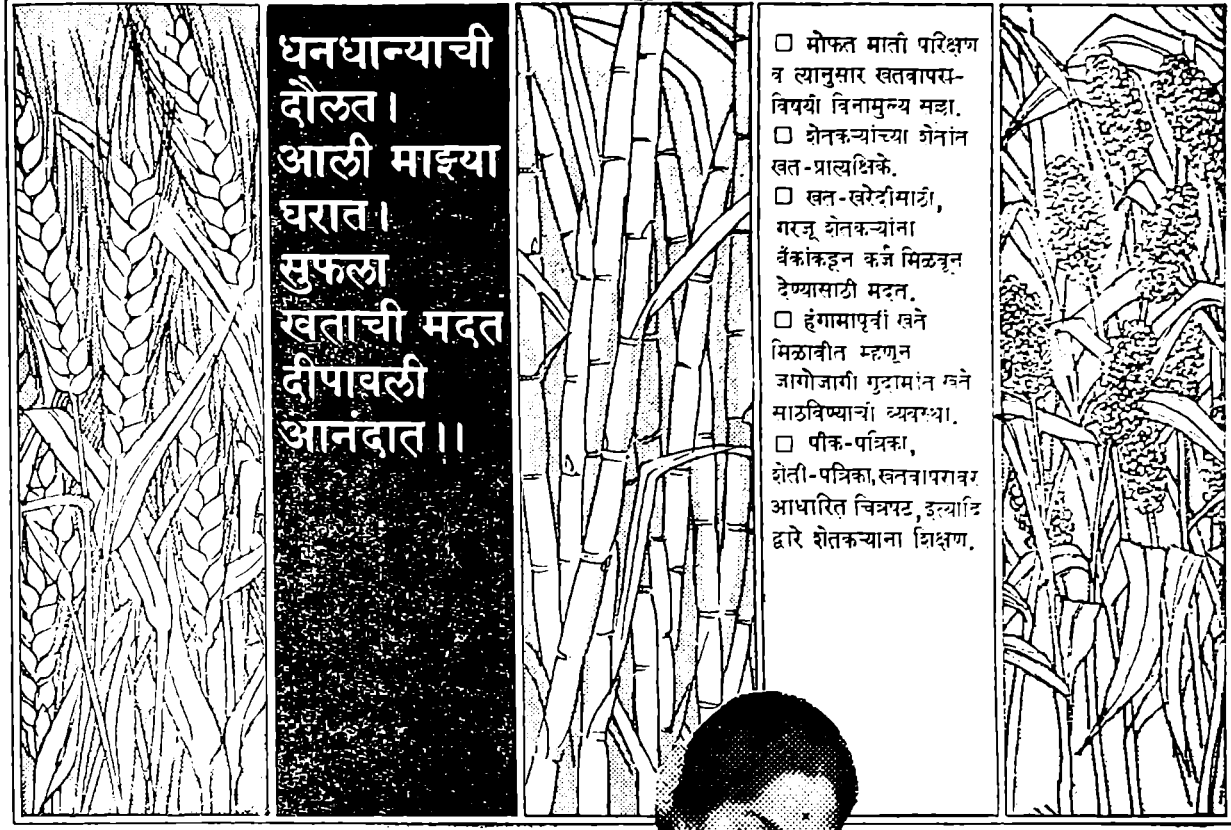 धनधान्याची
दौलत।
आली माझ्या
घरात।
सुफला
खताची मदत
दीपावली
आनंदात।।
□ मोफत माती परिक्षण
व त्यानुसार खतवापरा-
विषयी विनामुल्य सल्ला.
□ शेतकऱ्यांच्या शेतांत
खत-प्रात्यक्षिके.
□ खत-खरेदीसाठी,
गरजू शेतकऱ्यांना
बँकांकडून कर्ज मिळवून
देण्यासाठी मदत.
□ हंगामापूर्वी खते
मिळावीत म्हणून
जागोजागी गुदामांत खते
साठविण्याची व्यवस्था.
□ पीक-पत्रिका,
शेती-पत्रिका,खतवापरावर
आधारित चित्रपट,इत्यादि
द्वारे शेतकऱ्याना शिक्षण.